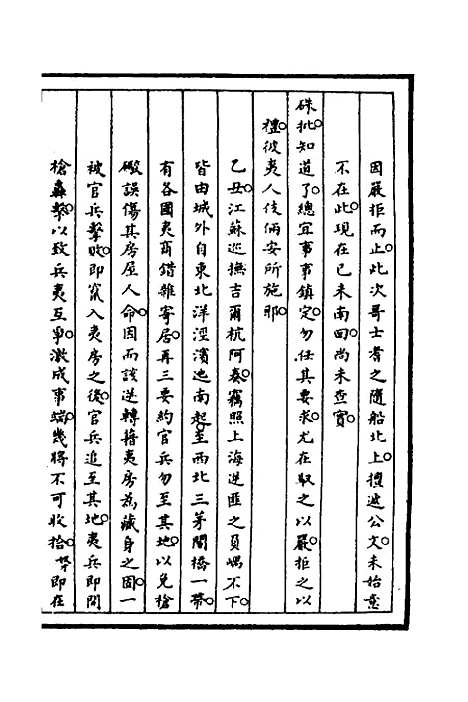 因嚴拒而止。此次哥士耆之隨船北上。擅遞公文。未始意
不在此。現在已未南回。尚未查實。
硃批知道了。總宜事事鎮定。勿任其要求。尤在馭之以嚴。拒之以
禮。彼夷人伎倆安所施耶。
乙丑。江蘇巡撫吉爾杭阿奏。竊照上海逆匪之負嵎不下。
皆由城外自東北洋涇濱迤南起。至西北三茅閣橋一帶。
有各國夷商錯雜寄居。再三要約官兵勿至其地。以免槍
礮誤傷其房屋人命。因而該逆轉藉夷房為藏身之固。一
被官兵擊敗。即竄入夷房之後。官兵追至其地。夷兵即開
槍轟擊。以致兵夷互爭。激成事端。幾將不可收拾。即在